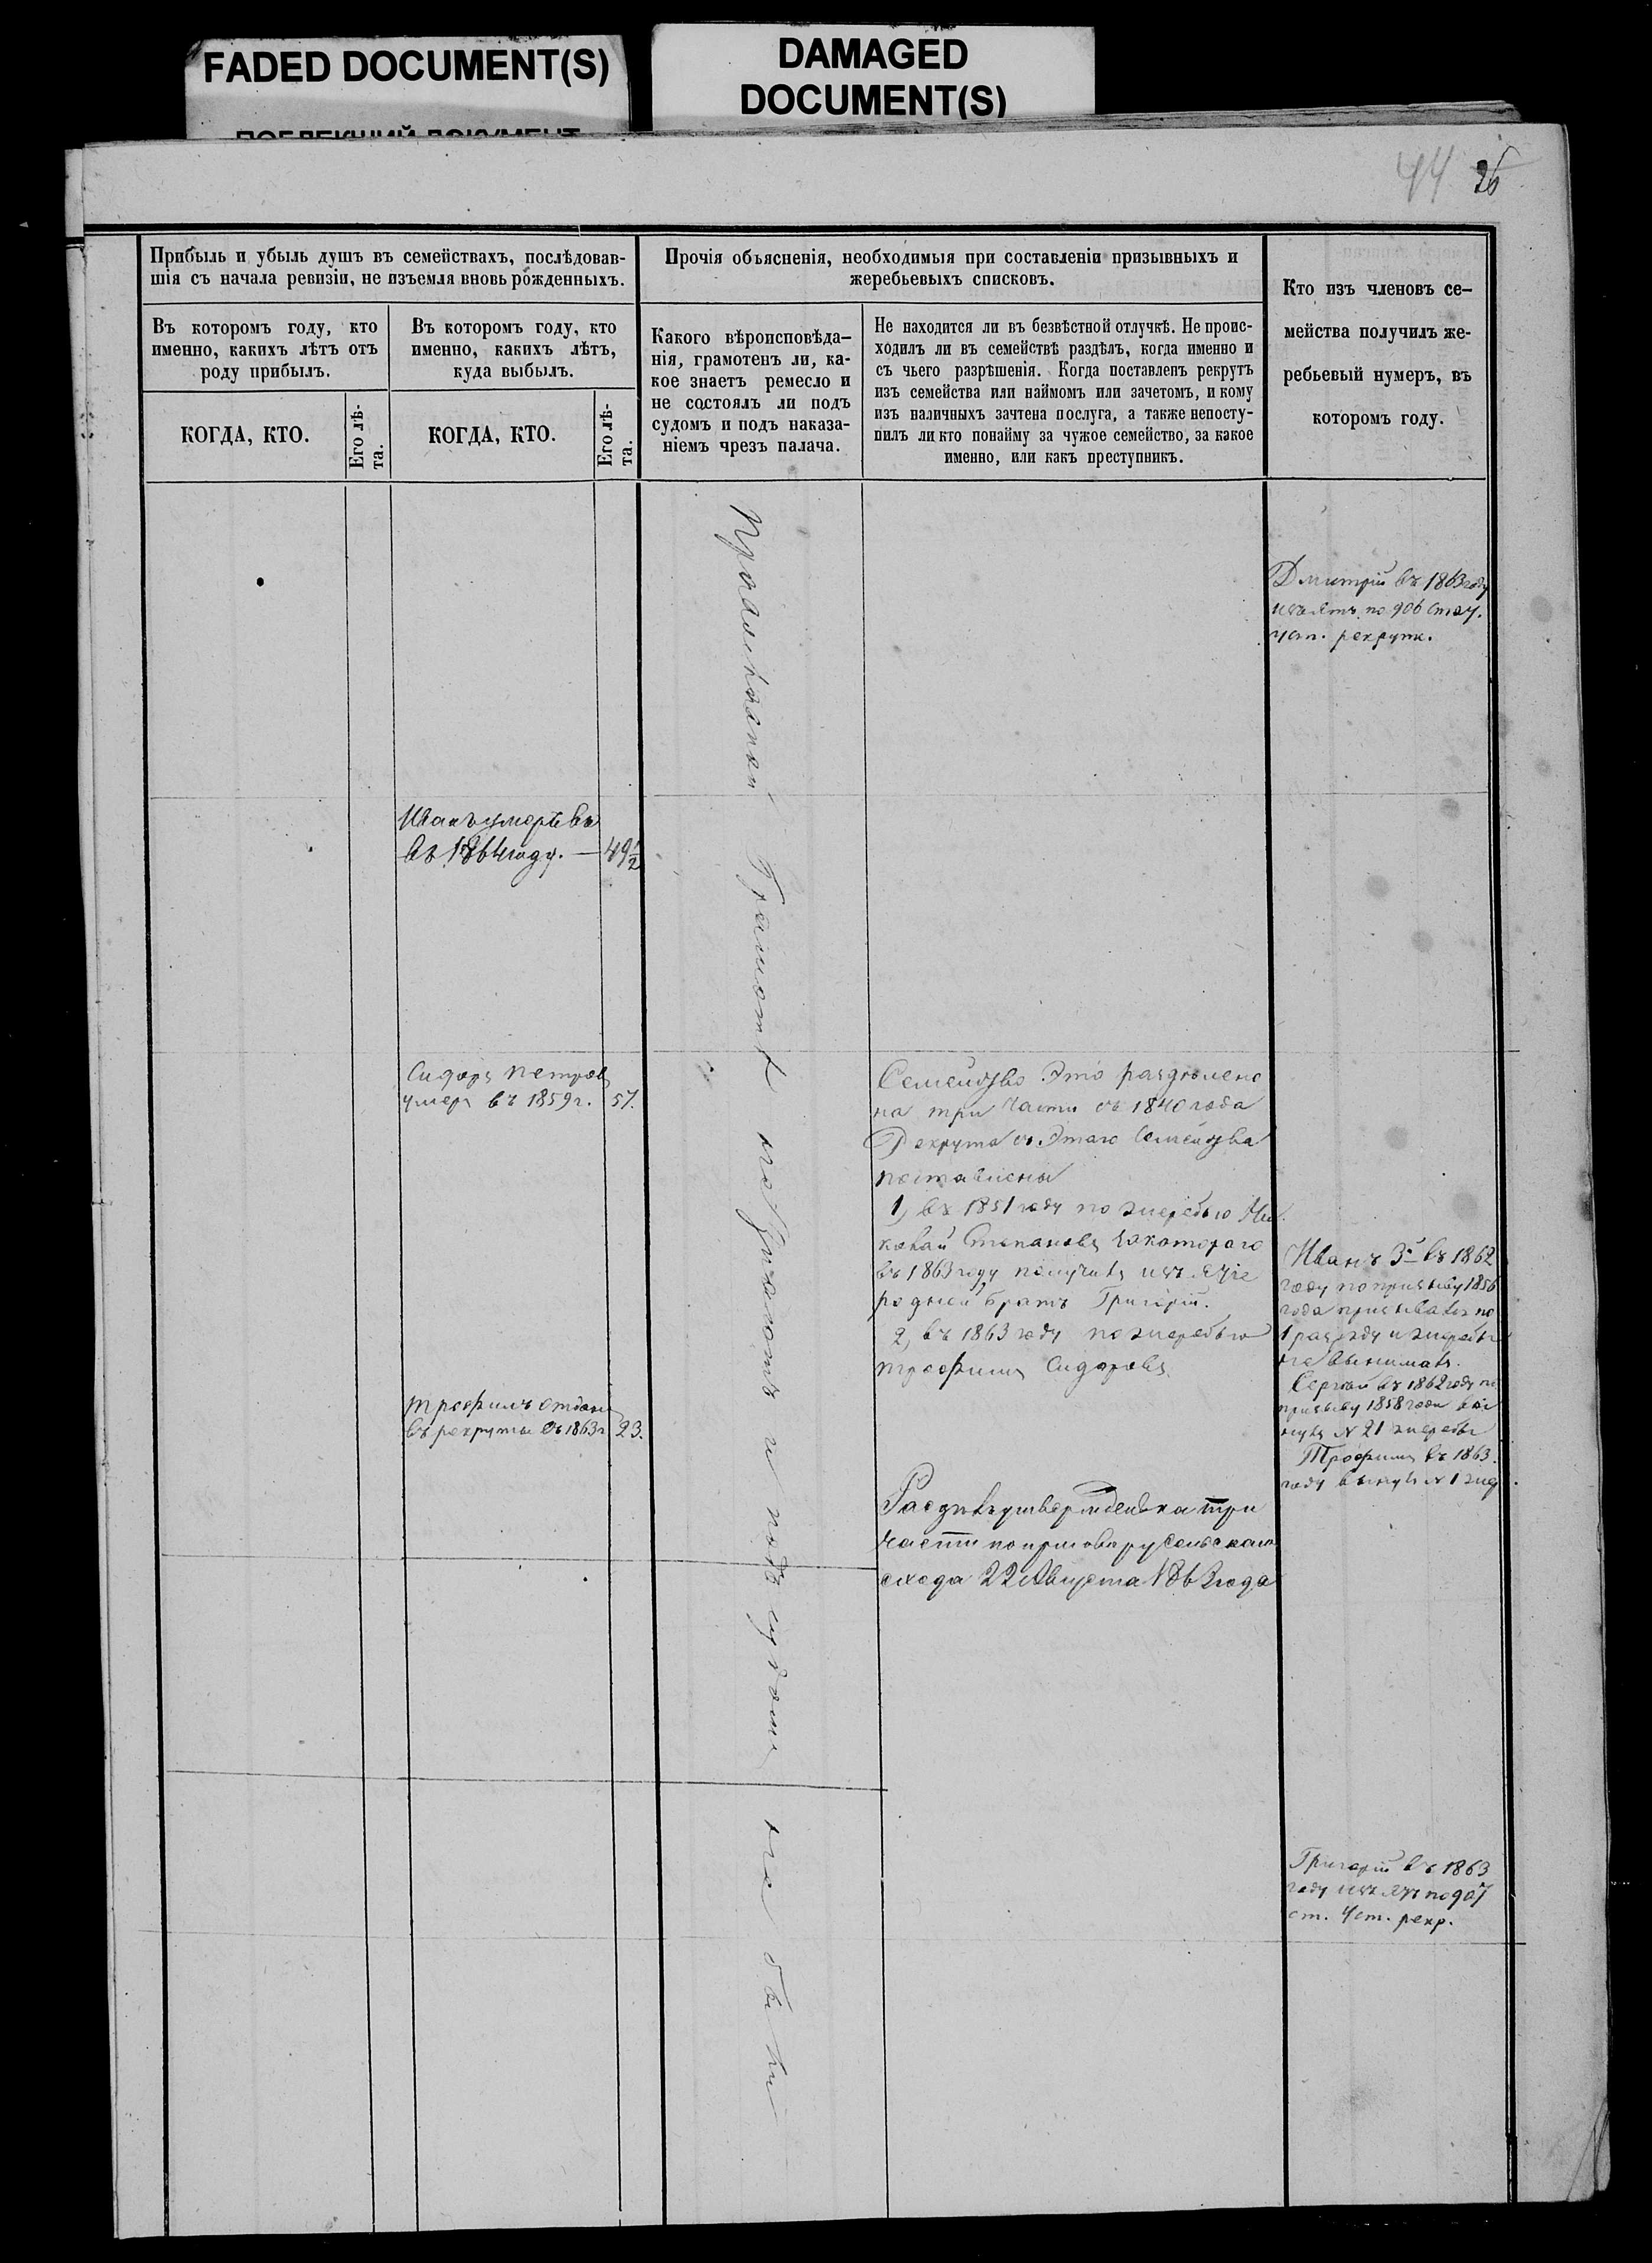 FADED DOCUMENT(S)
DAMAGED
DOCUMENT(S)
44 26
Прибыль и убыль душъ въ семействахъ, послѣдовав-
шія съ начала ревизіи, не изъемля вновь рожденныхъ.
Въ которомъ году, кто
именно, какихъ лѣтъ отъ
роду прибылъ.
Въ которомъ году, кто
именно, какихъ лѣтъ,
куда выбылъ.
КОГДА, КТО.
Его лѣ-
та.
КОГДА, КТО.
Его лѣ-
та.
Прочія объясненія, необходимыя при составленіи призывныхъ и
жеребьевыхъ списковъ.
Какого вѣроисповѣда-
нія, грамотенъ ли, ка-
кое знаетъ ремесло и
не состоялъ ли подъ
судомъ и подъ наказа-
ніемъ чрезъ палача.
Не находится ли въ безвѣстной отлучкѣ. Не проис-
ходилъ ли въ семействѣ раздѣлъ, когда именно и
съ чьего разрѣшенія. Когда поставленъ рекрутъ
изъ семейства или наймомъ или зачетомъ, и кому
изъ наличныхъ зачтена послуга, а также непосту-
пилъ ли кто понайму за чужое семейство, за какое
именно, или какъ преступникъ.
Кто изъ членовъ се-
мейства получилъ же-
ребьевый нумеръ, въ
которомъ году.
Дмитрій въ 1863 году
изъятъ по 906 стат.
уст. рекрут.
Иванъ умеръ въ
въ 1864 году. — 49½
Грамотѣ не и подъ судомъ не были
Сидоръ Петровъ
умеръ въ 1859 г. 57.
Семейство Это раздѣлено
на три части съ 1840 года
Рекрута съ Этаго Семейства
поставлены
1, въ 1851 году по жеребью Ни
колай Степановъ закотораго
въ 1863 году получилъ изъятіе
родной братъ Григорій.
2, въ 1863 году по жеребью
Трофимъ Сидоровъ
Иванъ 3й въ 1862
году по призыву 1856
года призывался по
1 разряду и жеребья
не вынималъ.
Сергѣй въ 1862 году по
призыву 1858 года вы
нулъ N 21 жеребья
Трофимъ въ 1863
году вынулъ N 1 жер
Трофимъ отданъ
въ рекруты въ 1863 г 23.
Раздѣлъ утвержденъ на три
части по приговору Сельскаго
схода 22 Августа 1862 года
Григорій въ 1863
году изъятъ по 907
ст. Уст. рекр.